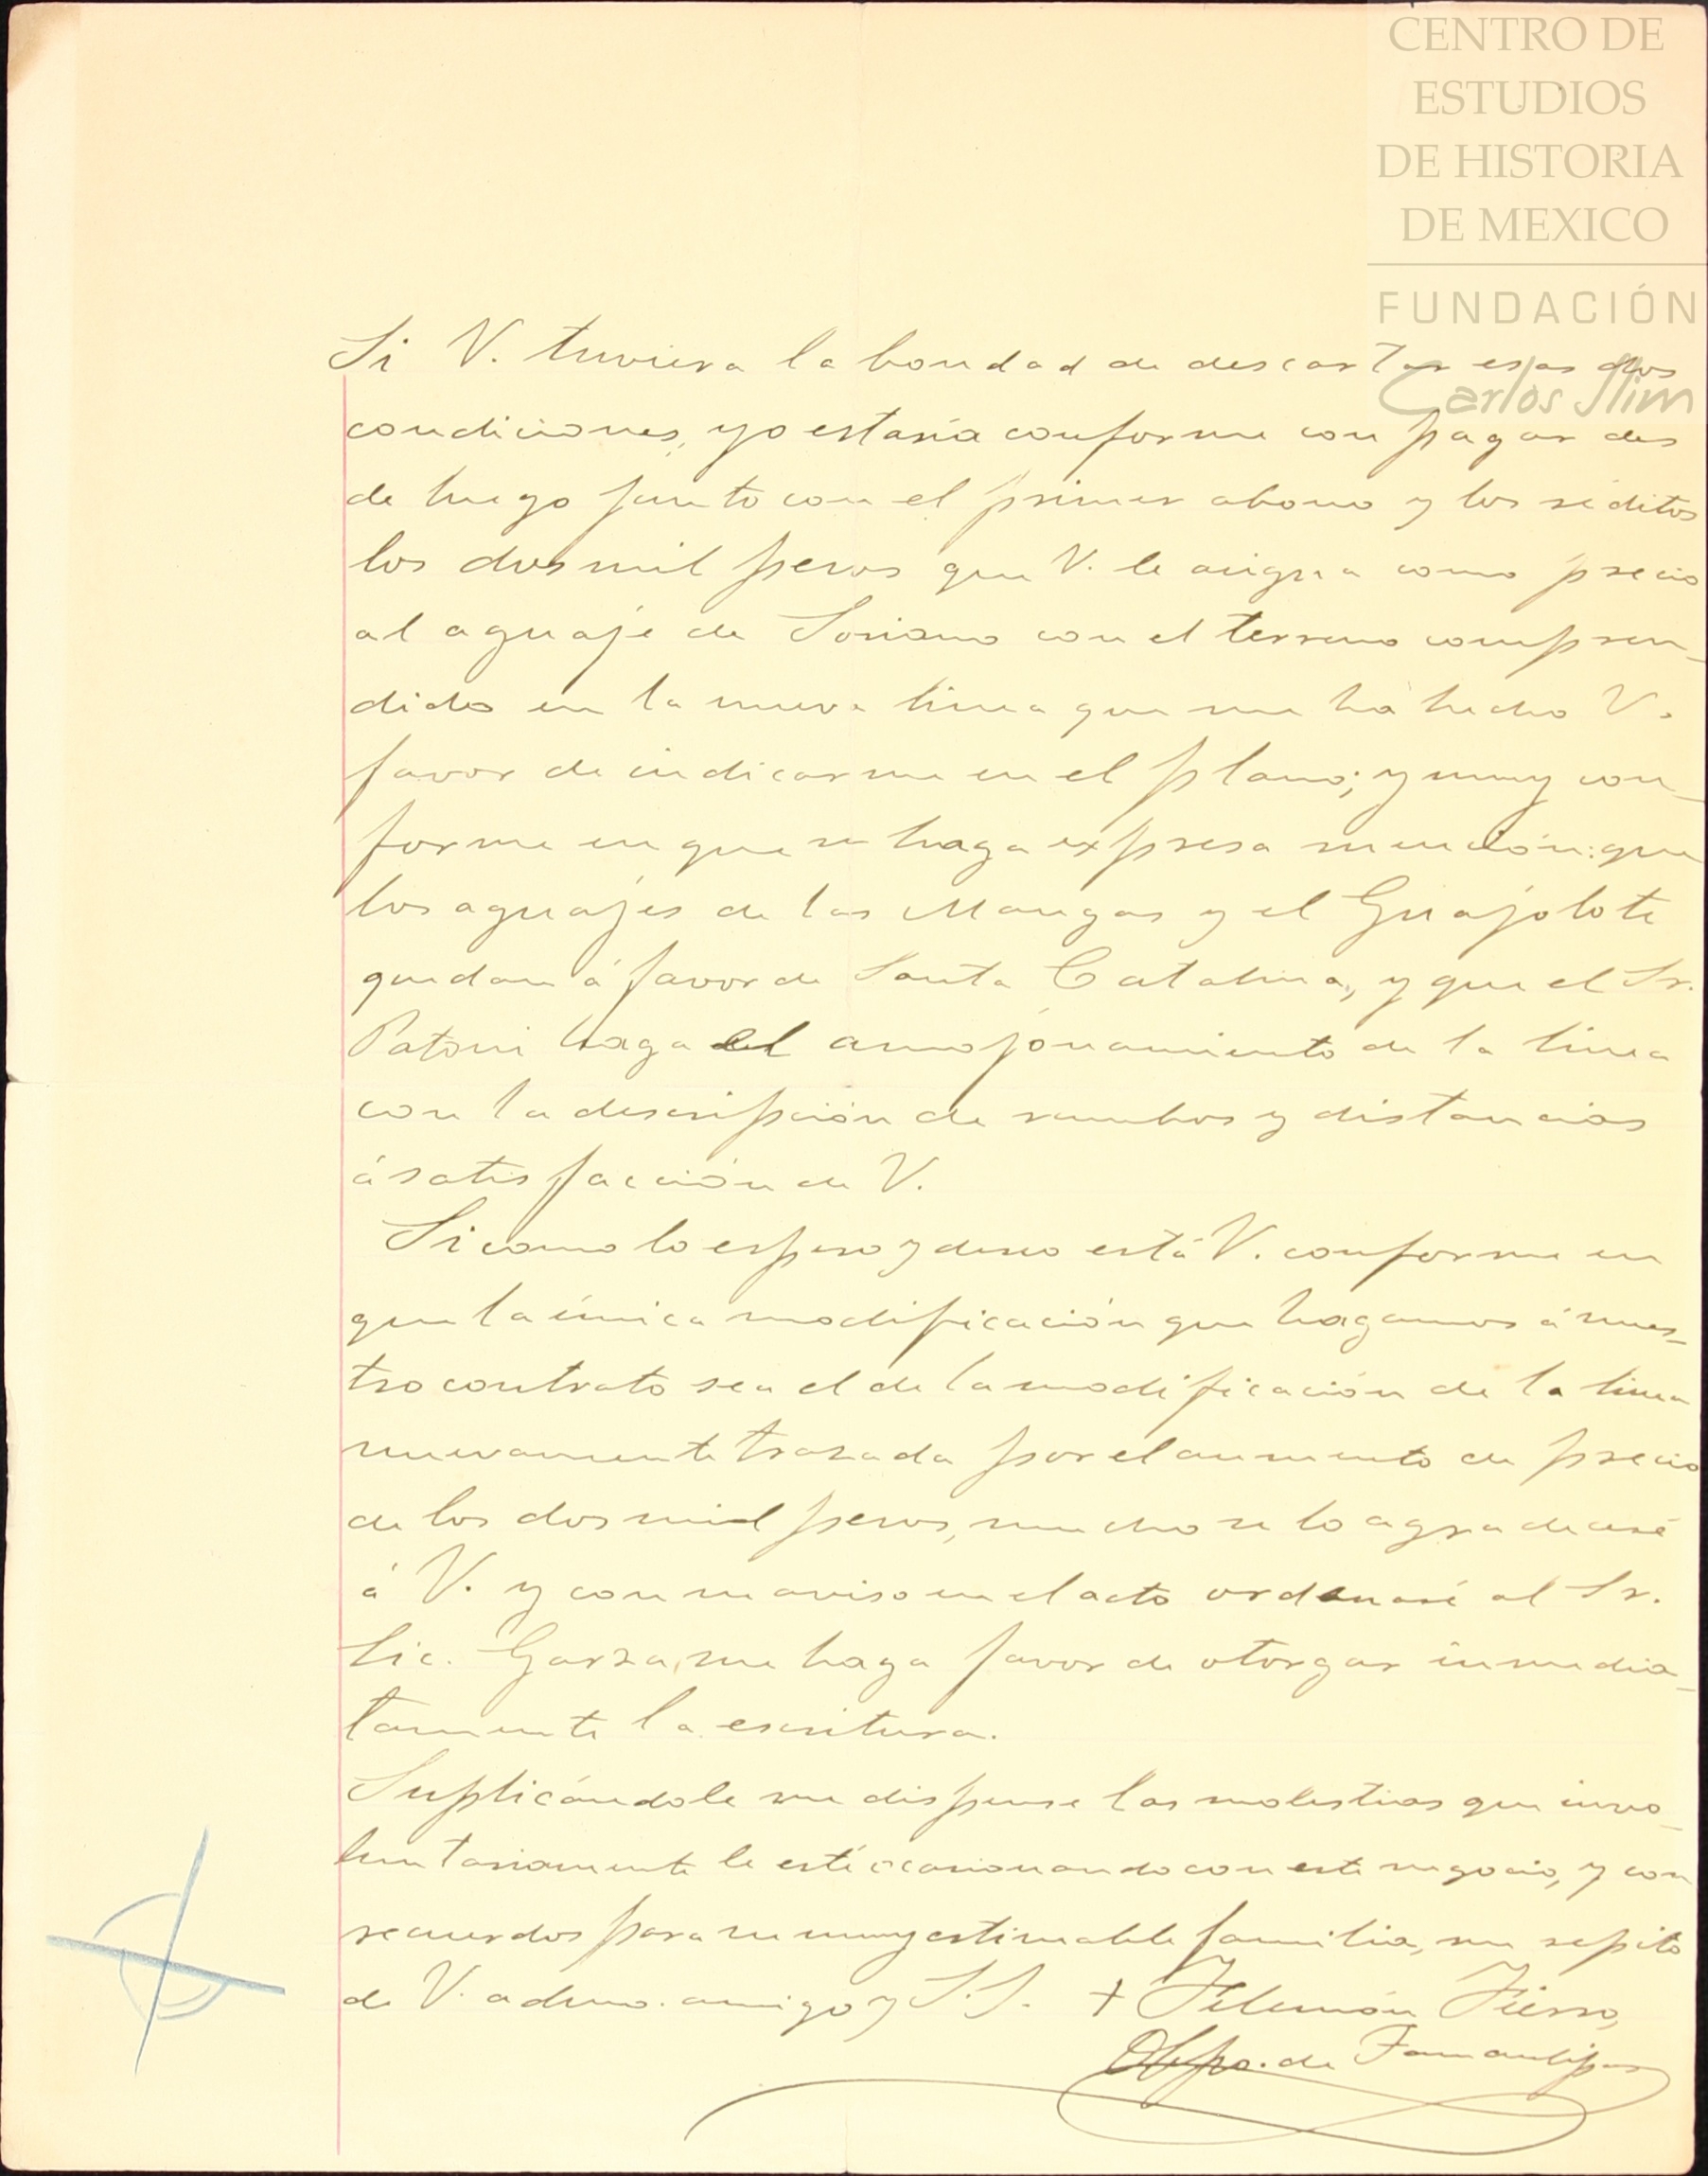 CENTRO DE
ESTUDIOS
DE HISTORIA
DE MEXICO
FUNDACIÓN
Carlos Slim
Si V. tuviera la bondad de descartar esas dos
condiciones, yo estaría conforme con pagar des
de luego junto con el primer abono y los réditos
los dos mil pesos que V. le asigna como precio
al aguaje de Soriano con el terreno compren_
dido en la nueva linea que me ha hecho V.
favor de indicarme en el plano; y muy con_
forme en que se haga expresa mención: que
los aguajes de las Mangas y el Guajolote
quedan á favor de Santa Catalina, y que el Sr.
Patoni haga el amojonamiento de la linea
con la descripción de rumbos y distancias
á satisfacción de V.
Si como lo espero y deseo está V. conforme en
que la única modificación que hagamos á nues_
tro contrato sea el de la modificación de la linea
nuevamente trazada por el aumento de precio
de los dos mil pesos, mucho se lo agradeceré
á V. y con su aviso en el acto ordenaré al Sr.
Lic. Garza, me haga favor de otorgar inmedia_
tamente la escritura.
Suplicándole me dispense las molestias que invo_
luntariamente le esté ocasionando con este negocio, y con
recuerdos para su muy estimable familia, me repito
de V. admo. amigo y S.S. + Filemón Fierro,
Obpo. de Tamaulipas